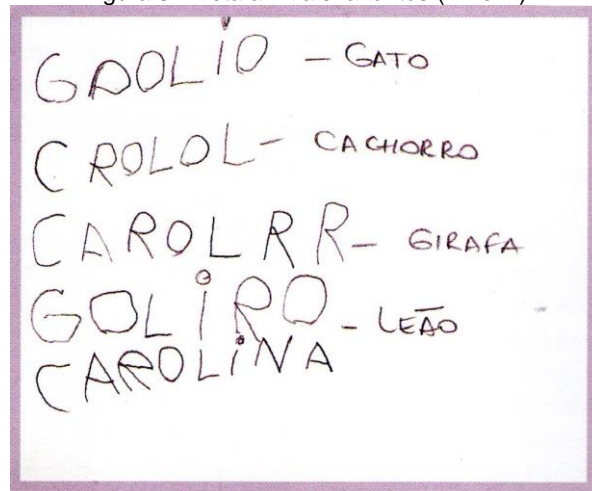 GAOLIO - GATO
CROLOL - CACHORRO
CAROLRR - GIRAFA
GOLIRO - LEÃO
CAROLINA